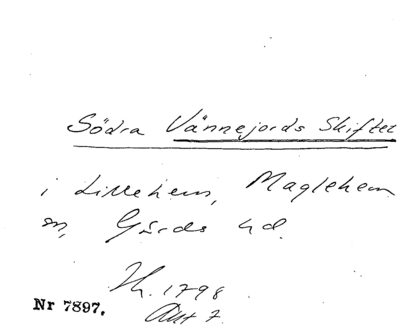 Södra Vännejords Skiftet
i Lillehem, Maglehem
sn, Gärds hd.
Th. 1798
Akt 7.
Nr 7897.